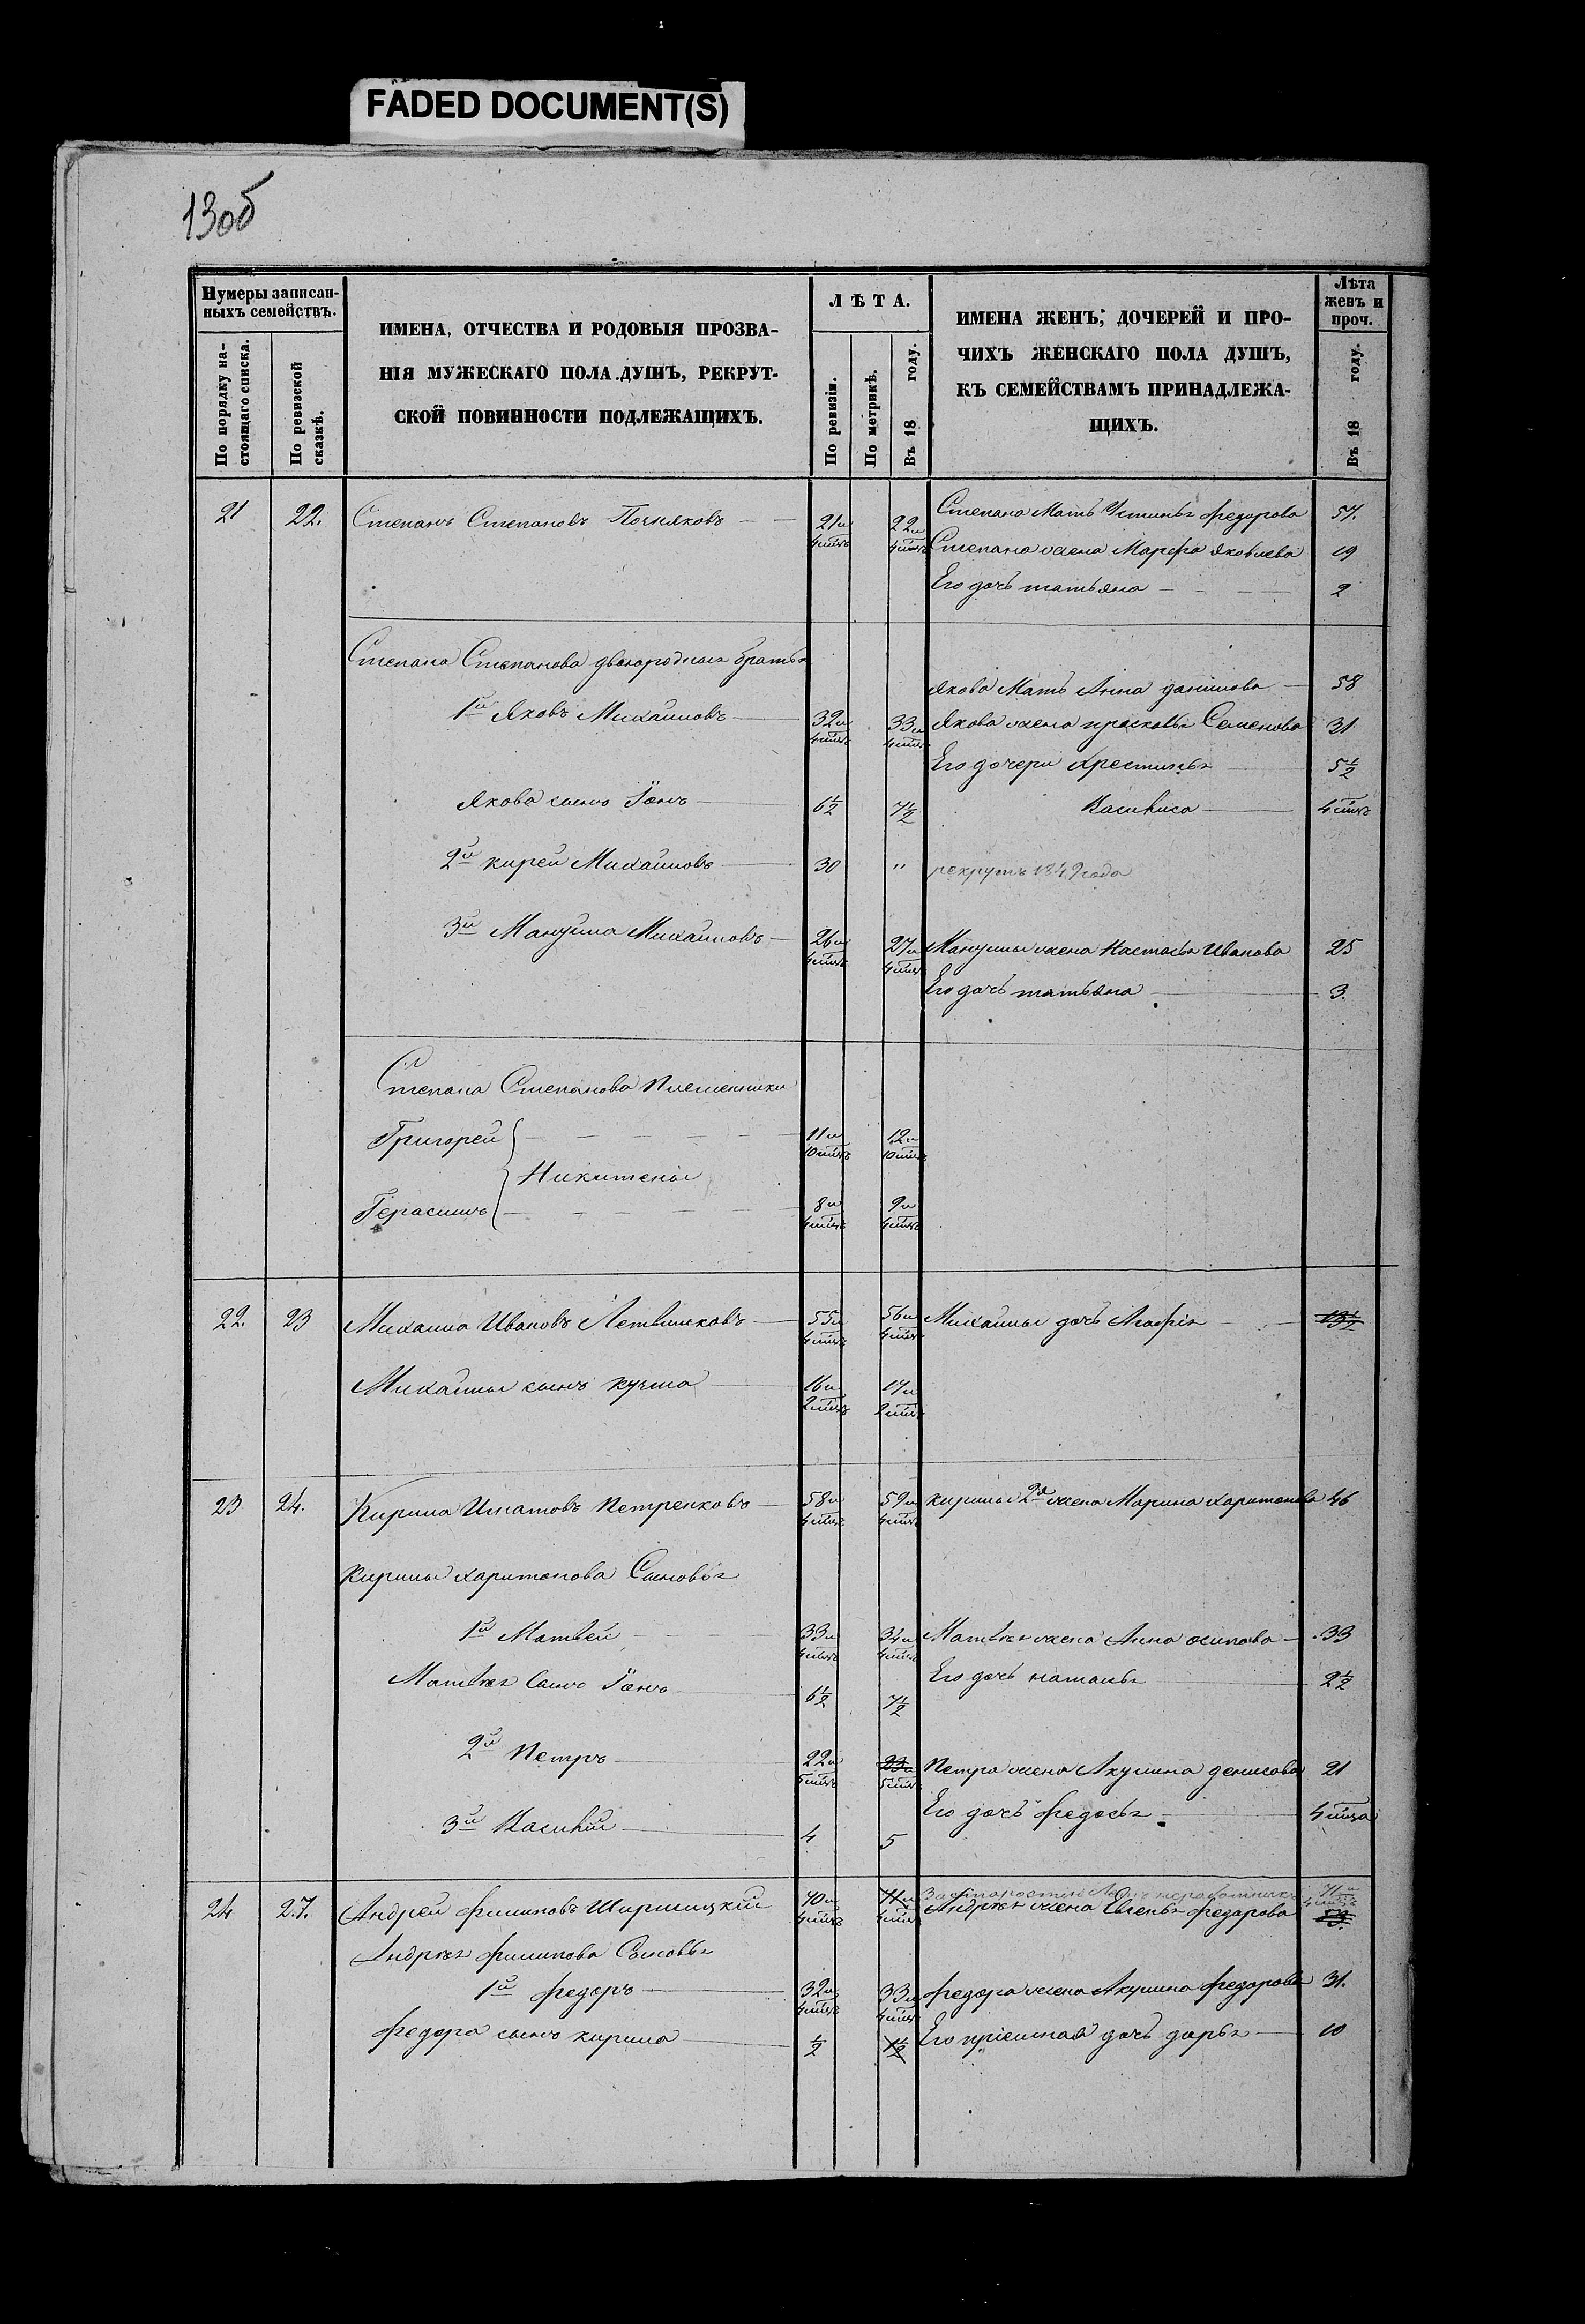 FADED DOCUMENT(S)
13об
Нумеры записан-
ныхъ семействъ.
По порядку на-
стоящаго списка.
По ревизской
сказкѣ.
ИМЕНА, ОТЧЕСТВА И РОДОВЫЯ ПРОЗВА-
НІЯ МУЖЕСКАГО ПОЛА ДУШЪ, РЕКРУТ-
СКОЙ ПОВИННОСТИ ПОДЛЕЖАЩИХЪ.
ЛѢТА.
По ревизіи.
По метрикѣ.
Въ 18 году.
ИМЕНА ЖЕНЪ, ДОЧЕРЕЙ И ПРО-
ЧИХЪ ЖЕНСКАГО ПОЛА ДУШЪ,
КЪ СЕМЕЙСТВАМЪ ПРИНАДЛЕЖА-
ЩИХЪ.
Лѣта
женъ и
проч.
Въ 18 году.
21 22. Степанъ Степановъ 21 и 4 мцъ 22 и 4 мцъ Степана Мать Устинья федорова 54.
Степана жена Марфа яковлева 19
Его дочь татьяна 2
Степана Степанова двоюродныя братья
якова Мать Анна данилова 58
1й Яковъ Михайловъ 32 и 4 мцъ 33 и 4 мцъ Якова жена прасковья Семенова 31
Его дочери Хрестинья 5½
Якова сынъ Іонъ 6½ 7½ Василиса 4 мцъ
2й кирей Михайловъ 30 " рекрутъ 1849 года
3й Мануйла Михайловъ 26 и 4 мцъ 27 и 4 мцъ Мануилы жена Настасья Иванова 25
Его дочь татьяна 3.
Степана Степанова Племенники
Григорей 11 и 10 мцъ 12 и 10 мцъ
Никитены
Герасимъ 8 и 4 мцъ 9 и 4 мцъ
22. 23 Михайла Ивановъ Летвинковъ 55 и 4 мцъ 56 и 4 мцъ Михайлы дочь Агафія 13½
Михайлы сынъ кузма 16 и 2 мцъ 17 и 2 мцъ
23 24. Кирила Игнатовъ Петренковъ 58 и 4 мцъ 59 и 4 мцъ кирилы 2я жена Марина харитонова 46
Кирилы харитонова Сыновья
1й Матвей 33 и 4 мцъ 34 и 4 мцъ Матвея жена Анна осипова 33
Матвея Сынъ Іонъ 6½ 7½ Его дочь наталья 2½
2й Петръ 22 и 5 мцъ 23 и 5 мцъ Петра жена Акулина денисова 21
Его дочь федосья 4 мцъа
3й Василій 4 5
24 27. Андрей филиповъ 70 и 4 мцъ 71 и 4 мцъ За старостію Лѣтъ неработникъ 71 и 4 мцъ
Андрея жена Евгенья федорова 53.
Андрея филипова Сыновья
1й федоръ 32 и 4 мцъ 33 и 4 мцъ федора жена Акулина федорова 31.
федора сынъ кирила ½ 1½ Его пріемная дочь дарья 10